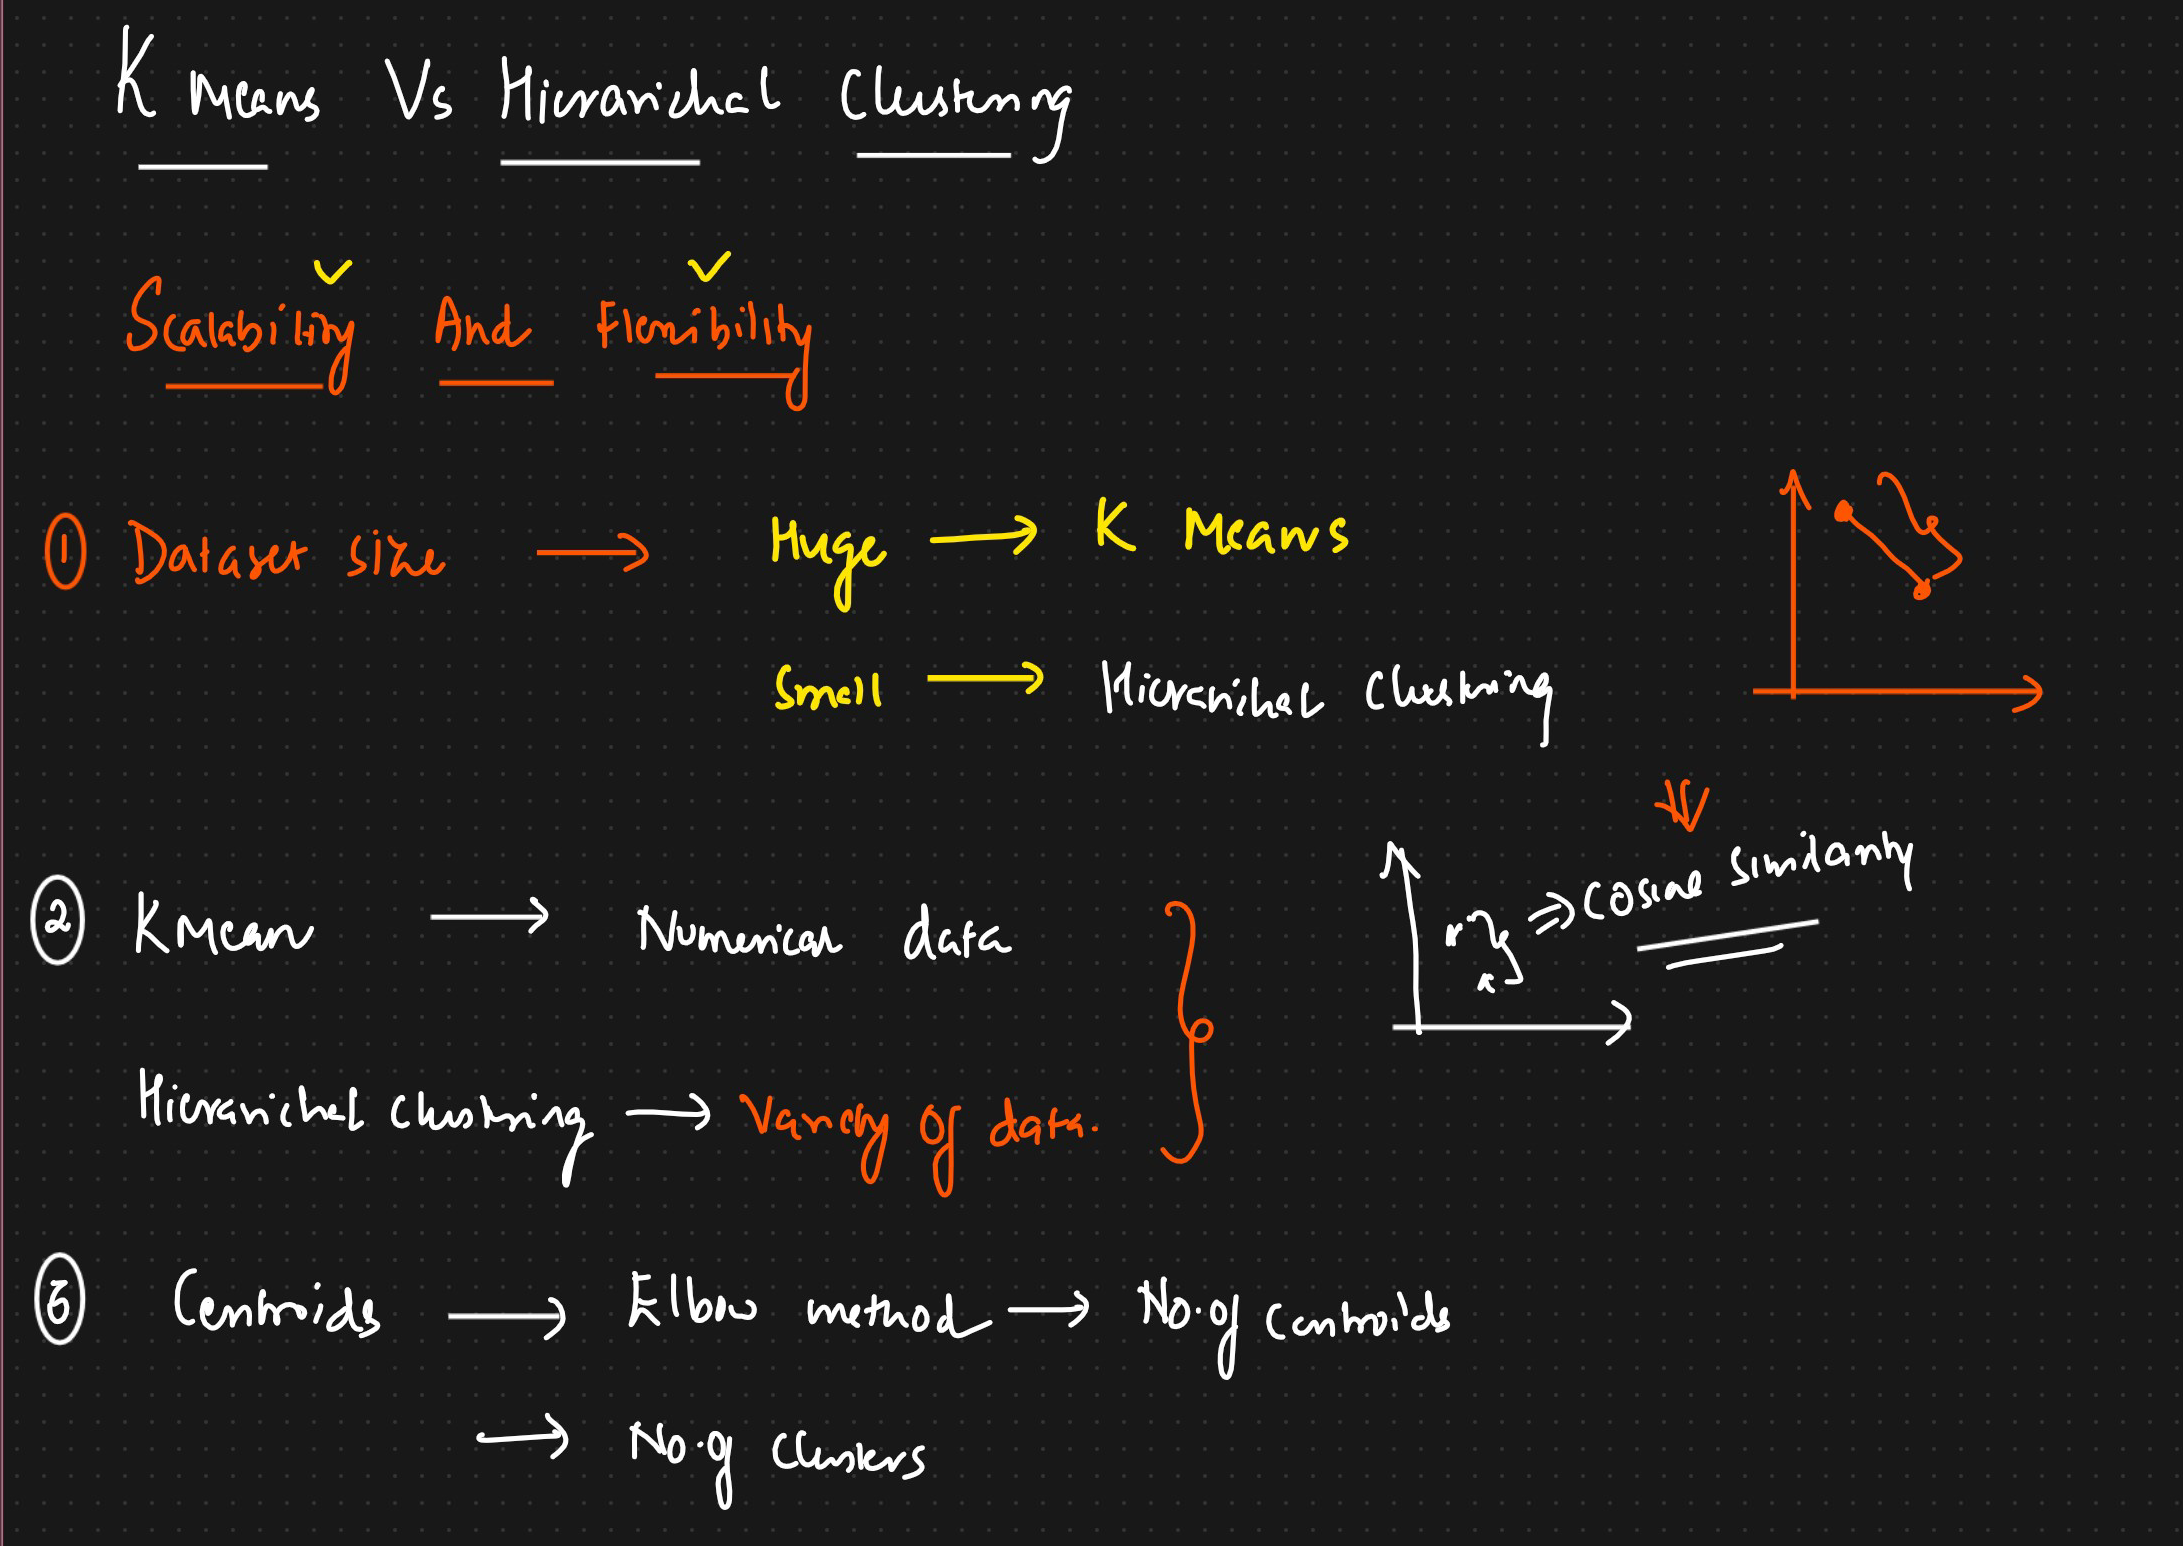 K Means Vs Hierarichal Clustering
Scalability And Flexibility
① Dataset size → Huge → K Means
Small → Hierarichal Clustering
② K Mean → Numerical data
⇒ Cosine Similarity
Hierarichal clustering → Variety of data.
③ Centroids → Elbow method → No. of Centroids
→ No. of Clusters